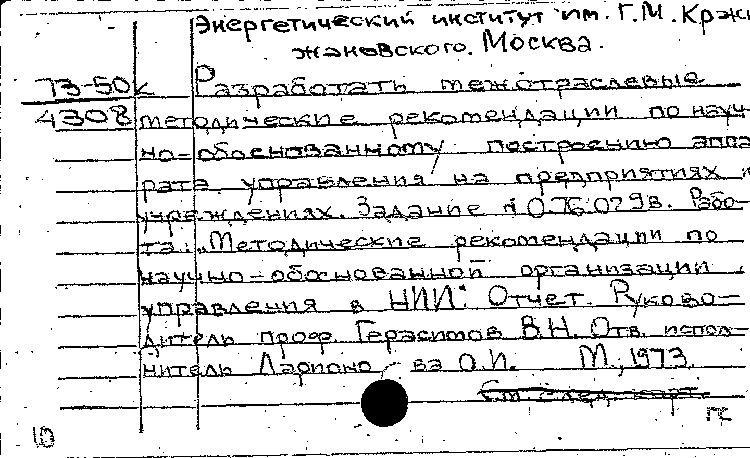 Энергетический институт им. Г.М. Кржи
жановского. Москва.
73-50к Разработать межотраслевые
4308 методические рекомендации по науч-
но-обоснованному построению аппа
рата управления на предприятиях и
учреждениях. Задание 0.76.079в. Рабо-
та: „Методические рекомендации по
научно-обоснованной организации
управления в НИИ". Отчет. Руково-
дитель проф. Герасимов В.Н. Отв. испол-
нитель Ларионо- ва О.И. М., 1973.
См след. карт.
ГС
10